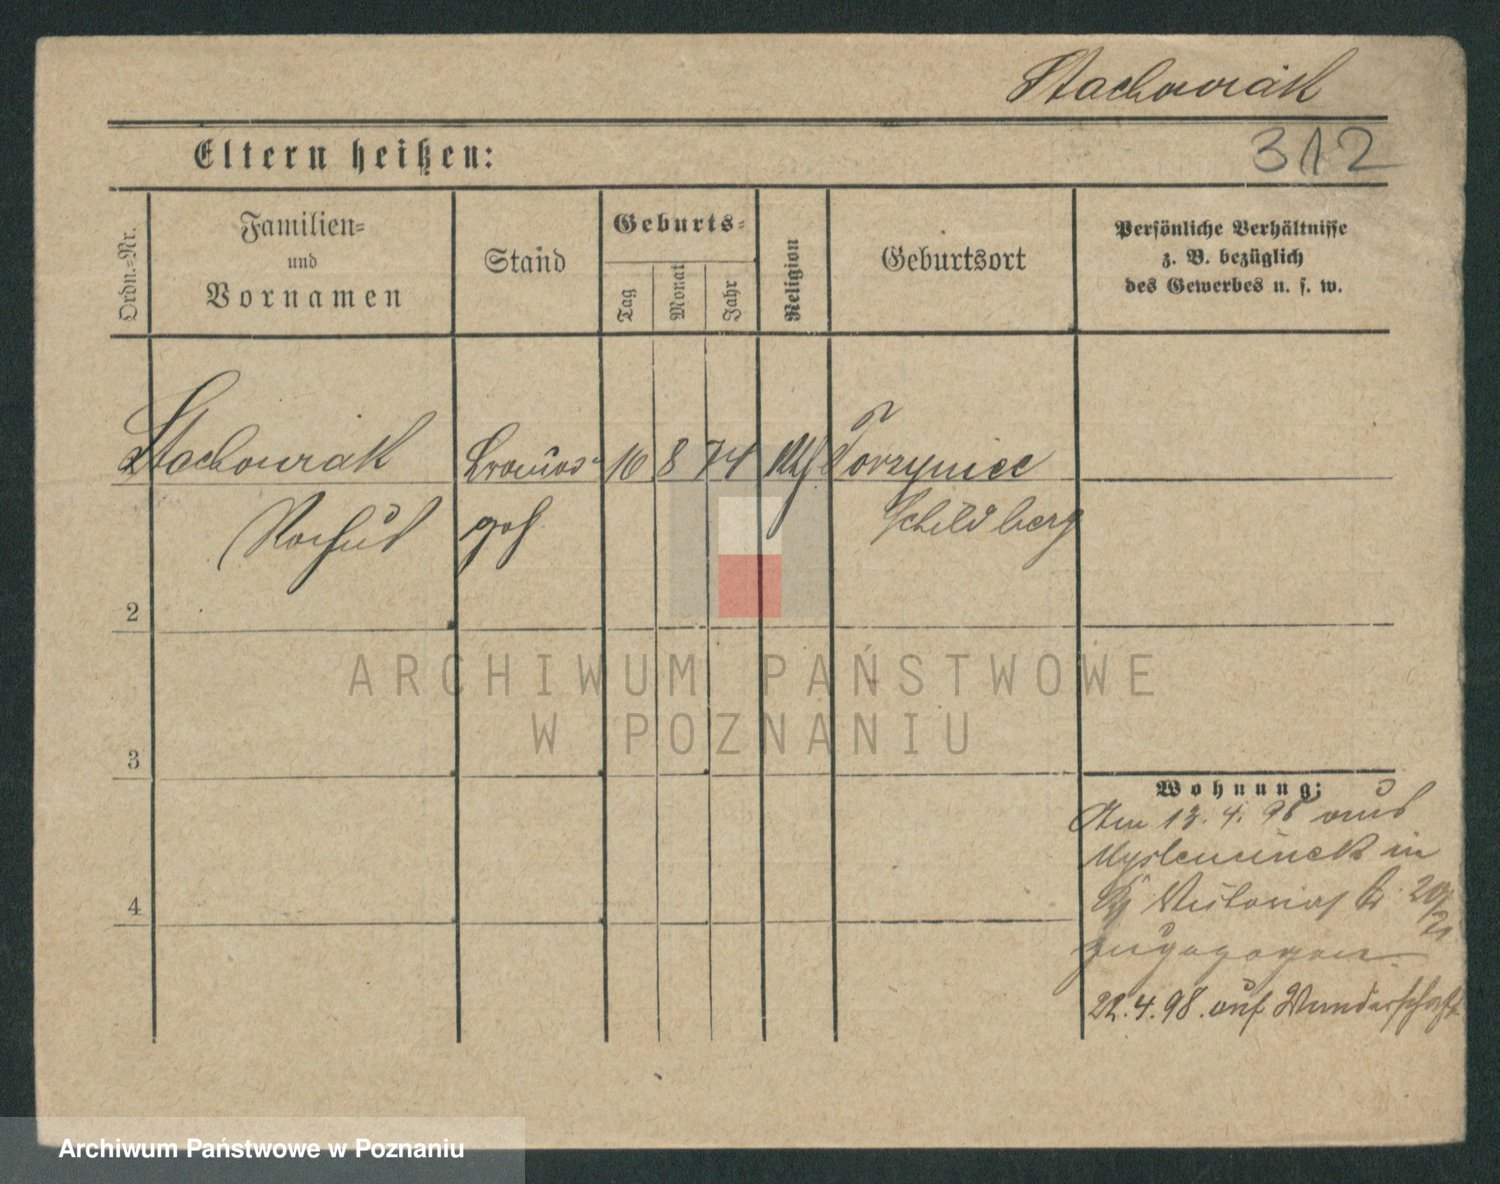 Stachowiak
312
Eltern heißen:
Ordn.-Nr.
Familien-
und
Vornamen
Stand
Geburts-
Tag
Monat
Jahr
Religion
Geburtsort
Persönliche Verhältnisse
z. B. bezüglich
des Gewerbes u. s. w.
Stachowiak 16 8 74 Torzyniec
Schildberg
2
3
4
Wohnung:
Am 13. 4. 98 aus
in
20/21
zugezogen
22.4.98. auf Wanderschaft
ARCHIWUM PAŃSTWOWE
W POZNANIU
Archiwum Państwowe w Poznaniu